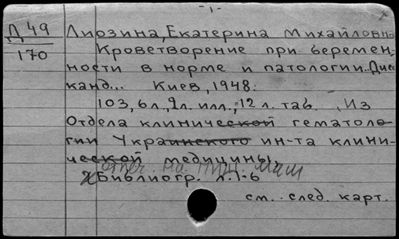 -1-
Д 49 Лиозина, Екатерина Михайловна
170 Кроветворение при беремен-
ности в норме и патологии. Дис
канд... Киев, 1948.
103, 6л, 9л. илл., 12 л. таб. Из
Отдела клинической гематоло-
гии Украинского ин-та клини-
ческой медицины.
Библиогр. л. 1-6
см. след. карт.